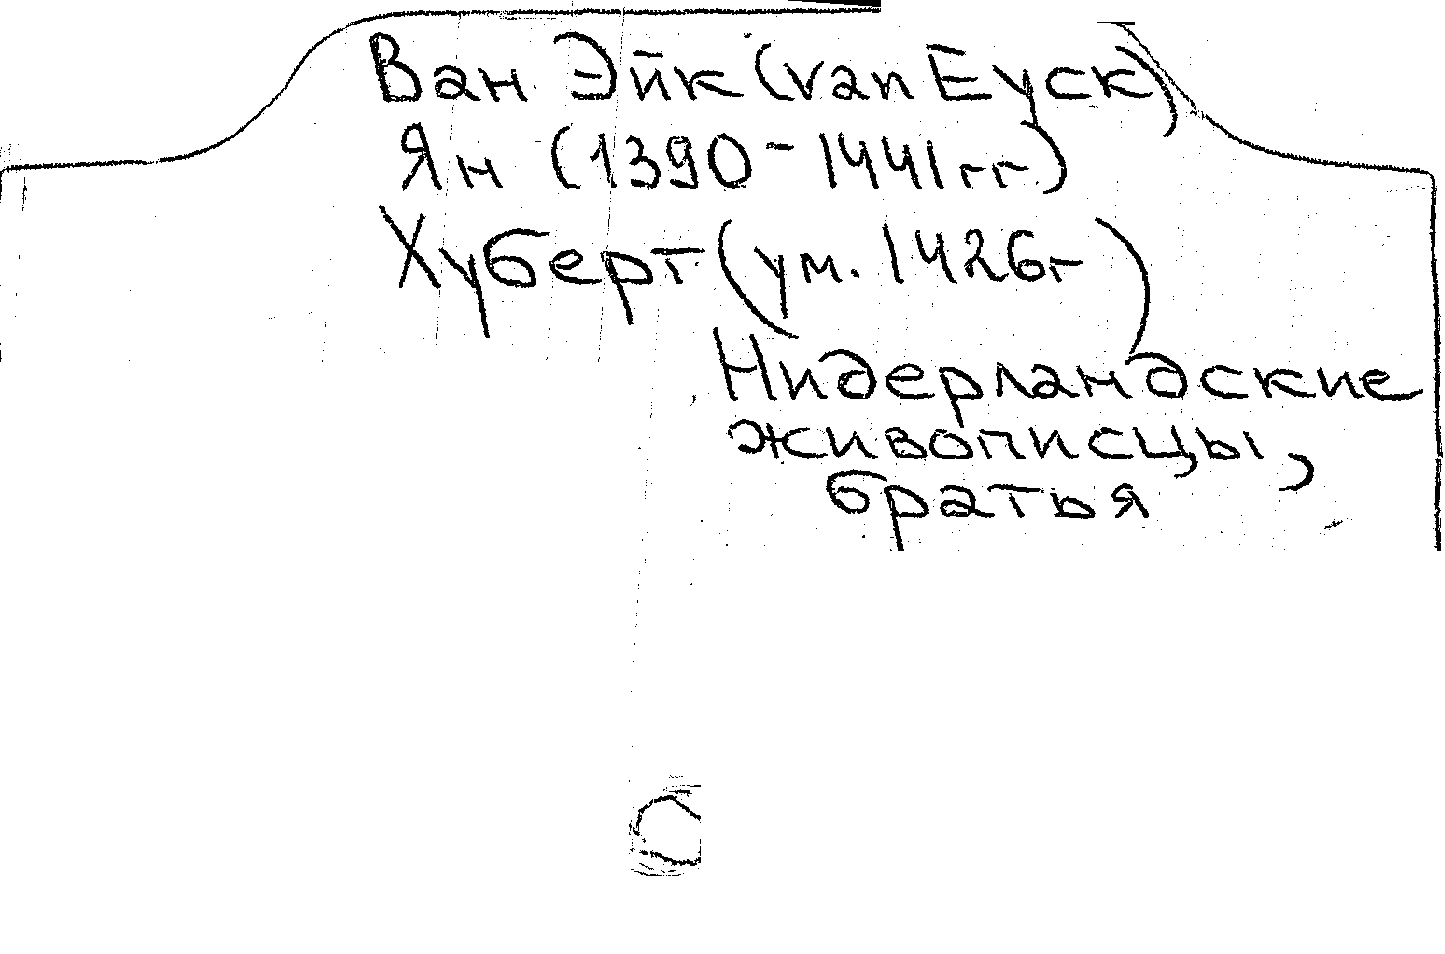 Ван Эйк (van Eyck)
Ян (1390-1441гг)
Хуберт (ум. 1426г)
Нидерландские
живописцы,
братья